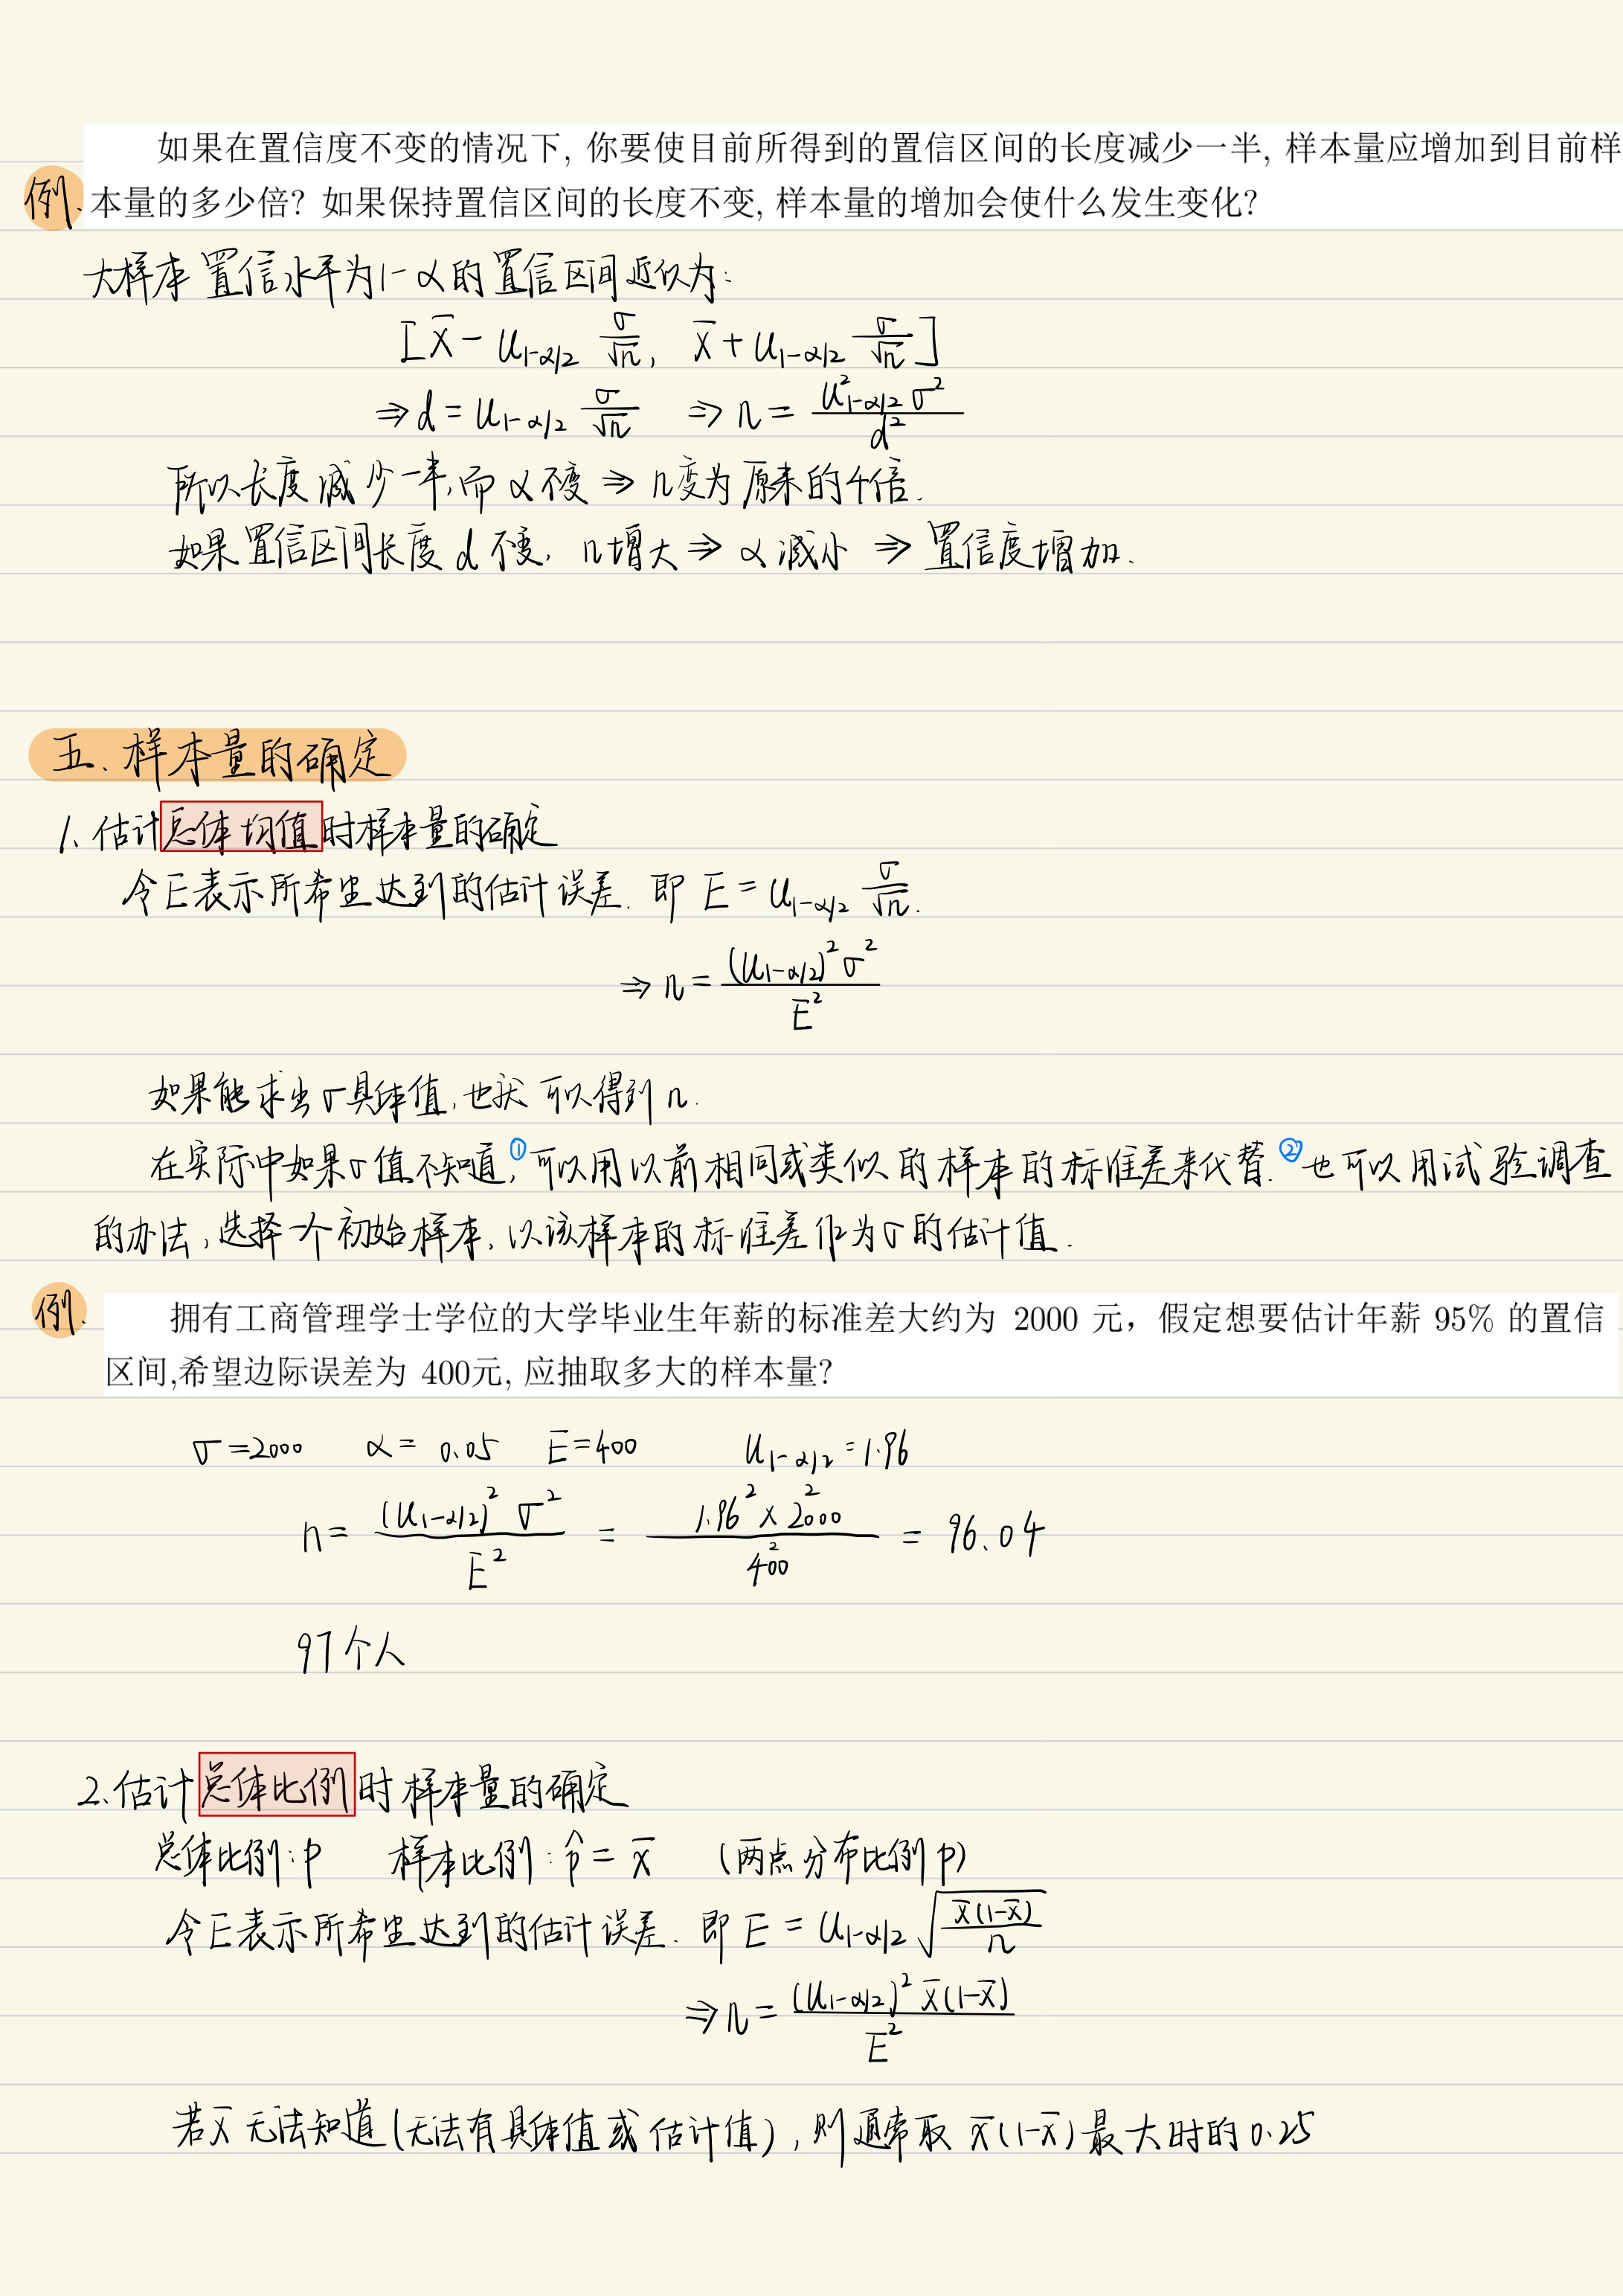 如果在置信度不变的情况下, 你要使目前所得到的置信区间的长度减少一半, 样本量应增加到目前样
例. 本量的多少倍? 如果保持置信区间的长度不变, 样本量的增加会使什么发生变化?
大样本 置信水平为1-α的置信区间近似为:
[x̄ - u_{1-α/2} σ/√n, x̄ + u_{1-α/2} σ/√n]
⇒ d = u_{1-α/2} σ/√n ⇒ n = u²_{1-α/2} σ² / d²
所以长度减少一半,而α不变 ⇒ n变为原来的4倍.
如果置信区间长度d不变, n增大 ⇒ α减小 ⇒ 置信度增加.
五、样本量的确定
1、估计总体均值时样本量的确定
令E表示所希望达到的估计误差. 即 E = u_{1-α/2} σ/√n.
⇒ n = (u_{1-α/2})² σ² / E²
如果能求出σ具体值,也就可以得到n.
在实际中如果σ值不知道,①可以用以前相同或类似的样本的标准差来代替.②也可以用试验调查
的办法,选择一个初始样本,以该样本的标准差作为σ的估计值.
例. 拥有工商管理学士学位的大学毕业生年薪的标准差大约为 2000 元，假定想要估计年薪 95% 的置信
区间,希望边际误差为 400元, 应抽取多大的样本量?
σ=2000 α= 0.05 E=400 u_{1-α/2}=1.96
n = (u_{1-α/2})² σ² / E² = 1.96² × 2000² / 400² = 96.04
97个人
2、估计总体比例时样本量的确定
总体比例:p 样本比例:p̂ = x̄ (两点分布比例p)
令E表示所希望达到的估计误差. 即 E = u_{1-α/2} √(x̄(1-x̄)/n)
⇒ n = (u_{1-α/2})² x̄(1-x̄) / E²
若x̄无法知道(无法有具体值或估计值),则通常取 x̄(1-x̄)最大时的0.25